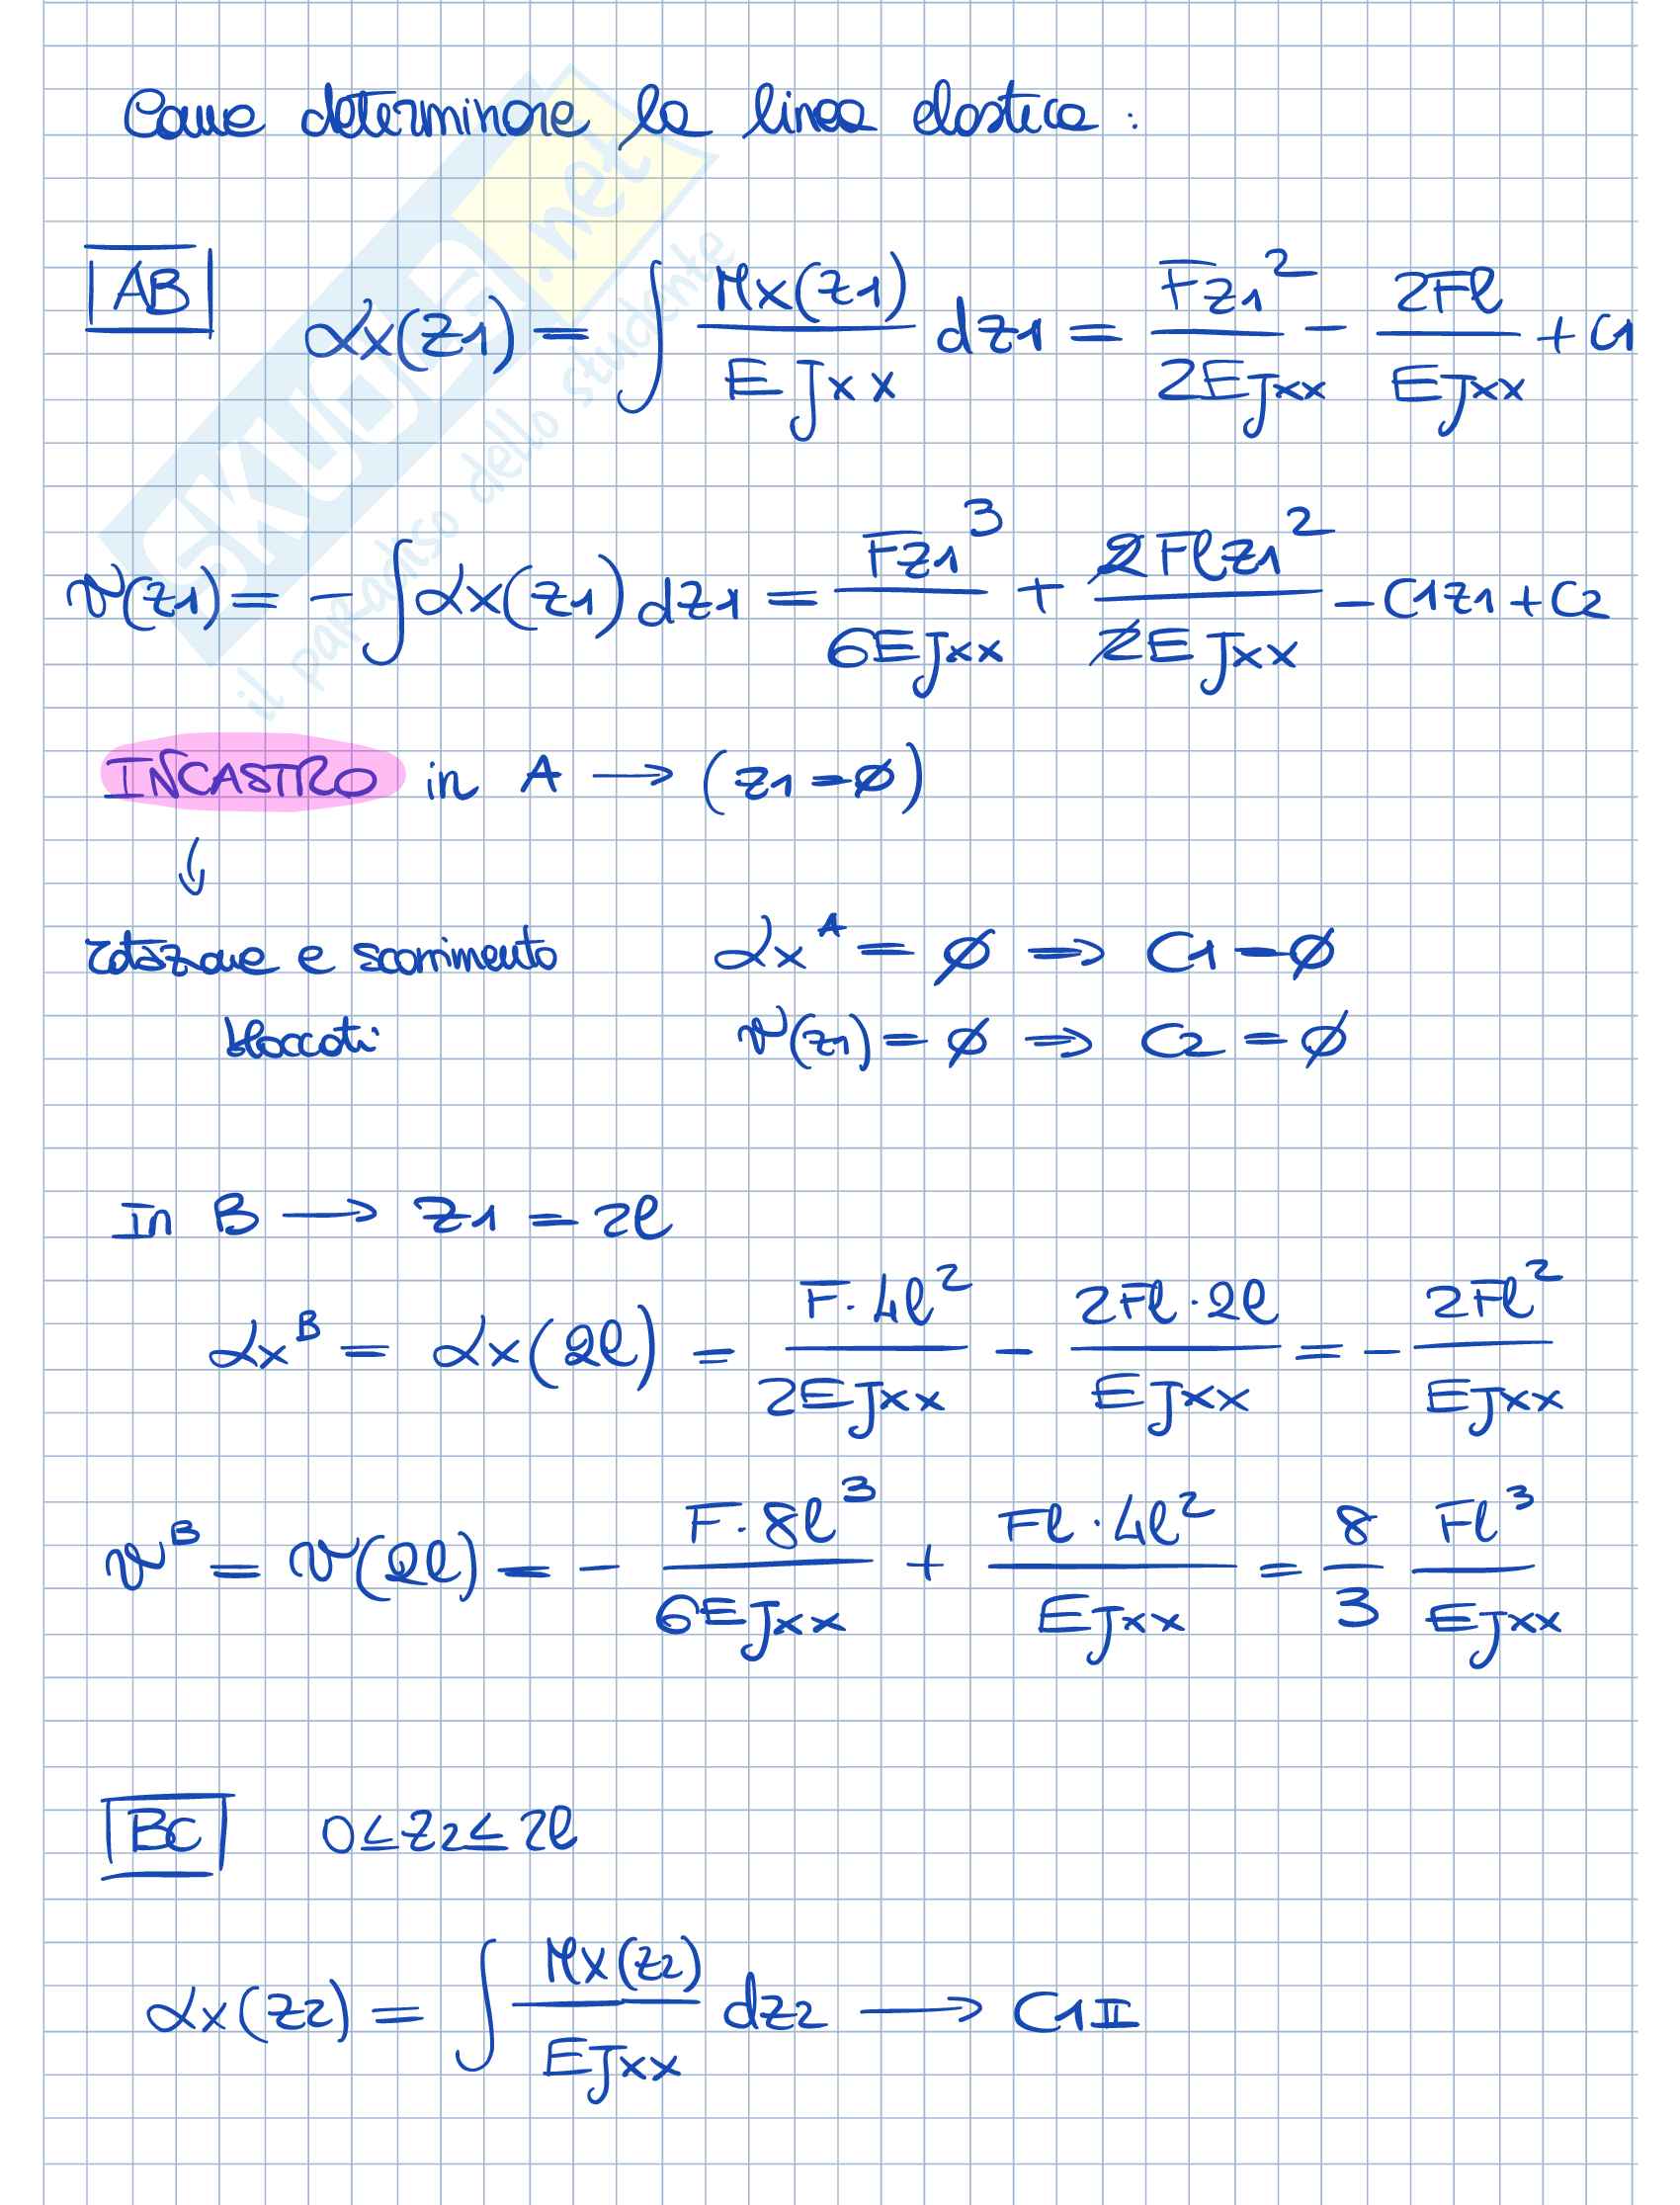 Come determinare la linea elastica:
AB αx(z1) = ∫ Mx(z1)/EJxx dz1 = Fz1²/2EJxx - 2Fl/EJxx + C1
v(z1) = - ∫ αx(z1) dz1 = Fz1³/6EJxx + 2Flz1²/2EJxx - C1z1 + C2
INCASTRO in A → (z1 = ∅)
↓
rotazione e scorrimento αx^A = ∅ ⇒ C1 = ∅
bloccati v(z1) = ∅ ⇒ C2 = ∅
In B → z1 = 2l
αx^B = αx(2l) = F·4l²/2EJxx - 2Fl·2l/EJxx = - 2Fl²/EJxx
v^B = v(2l) = - F·8l³/6EJxx + Fl·4l²/EJxx = 8/3 Fl³/EJxx
BC 0≤z2≤2l
αx(z2) = ∫ Mx(z2)/EJxx dz2 → C1II
SKUOLA.net
il paradiso dello studente